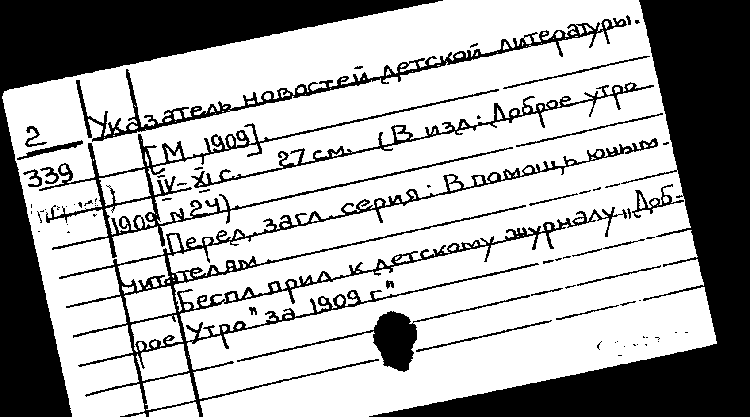 2
339
Указатель новостей детской литературы.
[М., 1909].
IV-XI с. 27 см. (В изд.: Доброе утро
1909 N 24).
Перед. загл. серия: В помощь юным
читателям.
Беспл. прил. к детскому журналу „Доб=
рое Утро" за 1909 г."